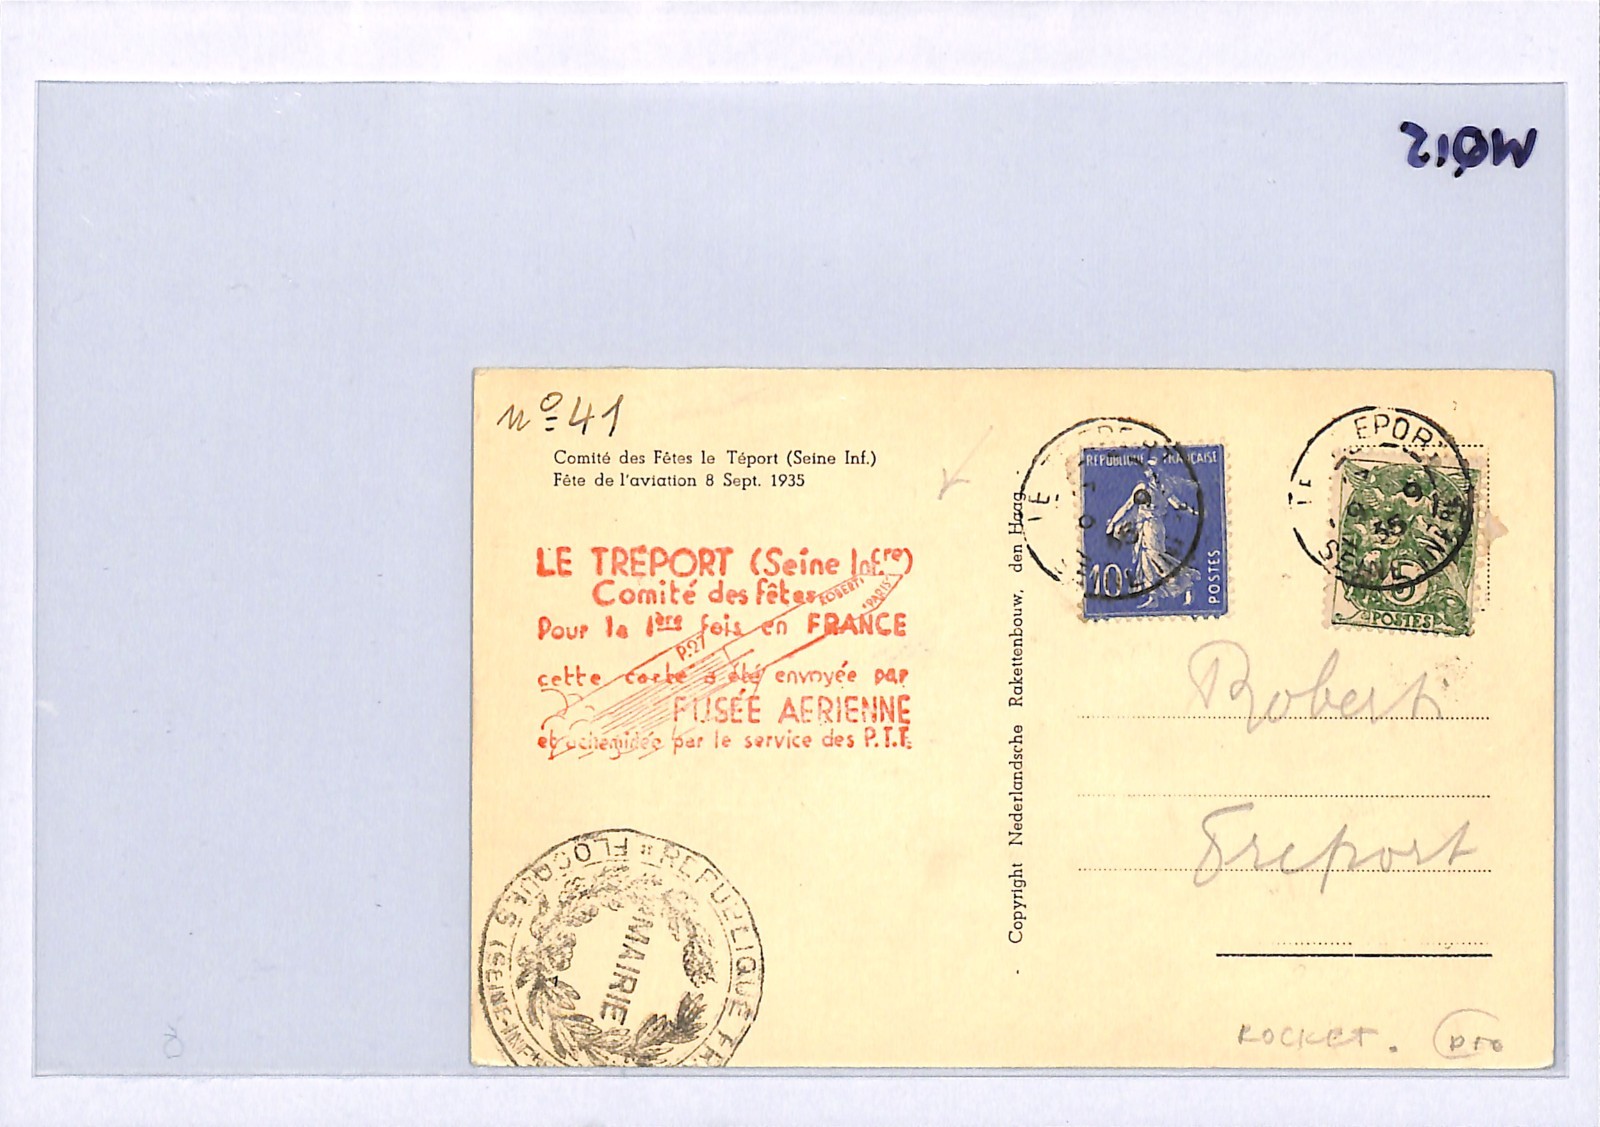 MØ12
nº 41
Comité des Fêtes le Téport (Seine Inf.)
Fête de l'aviation 8 Sept. 1935
LE TRÉPORT (Seine Infre)
Comité des fêtes
Pour la 1ère fois en FRANCE
cette carte a été envoyée par
FUSÉE AERIENNE
et acheminée par le service des P.T.T.
ROBERTI
"PARIS"
P.27
Copyright Nederlandsche Rakettenbouw, den Haag.
REPUBLIQUE FRANÇAISE
10c
POSTES
5
POSTES
LE TREPORT
SEINE INFRE
9 35
Roberti
Treport
REPUBLIQUE FR
FLOCQUES (SEINE-INFRE
MAIRIE
ROCKET.
PTO